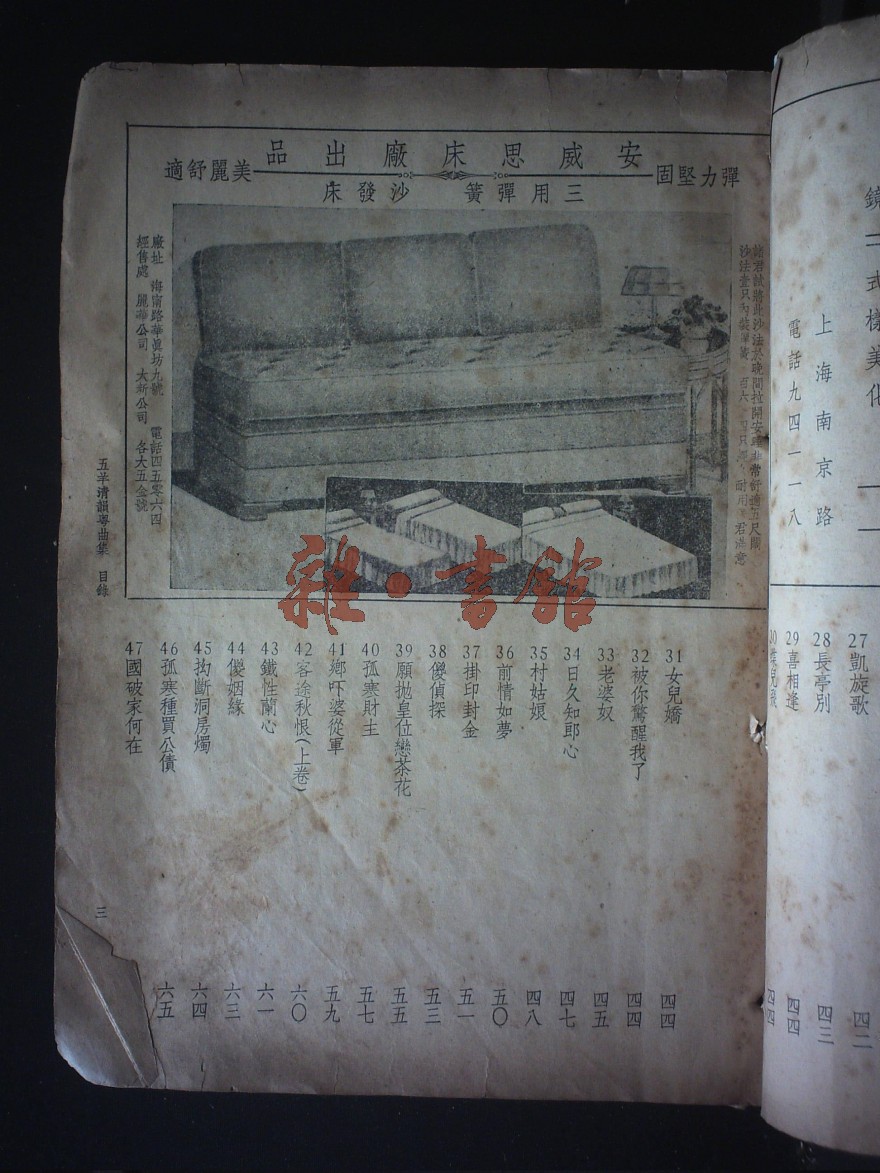 安威思床廠出品
彈力堅固
美麗舒適
三用彈簧 沙發床
廠址 海南路華真坊九號 電話四五零六四
經售處 麗華公司 大新公司 各大五金號
五羊清韻粵曲集 目錄
三
31 女兒嬌 四四
32 被你驚醒我了 四四
33 老婆奴 四五
34 日久知耶心 四七
35 村姑娘 四八
36 前情如夢 五〇
37 掛印封金 五一
38 傻偵探 五三
39 願拋皇位戀茶花 五五
40 孤寒財主 五七
41 鄉吓婆從軍 五九
42 客途秋恨(上卷) 六〇
43 鐵性蘭心 六一
44 傻姻緣 六三
45 拗斷洞房燭 六四
46 孤寒種買公債 六五
47 國破家何在
鏡 式樣美化
上海南京路
電話九四一一八
27 凱旋歌 四二
28 長亭別 四三
29 喜相逢 四四
30 四四
雜·書館